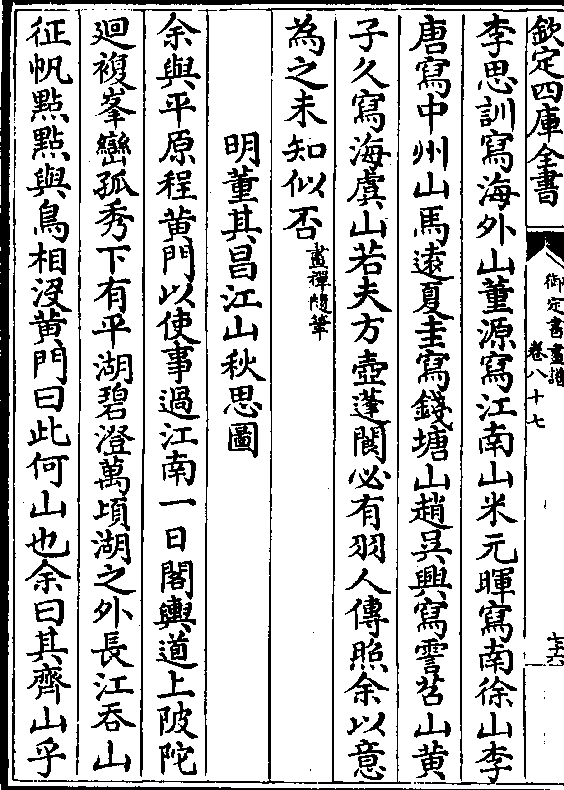 欽定四庫全書
御定書畫譜
卷八十七
李思訓寫海外山董源寫江南山米元暉寫南徐山李
唐寫中州山馬遠夏圭寫錢塘山趙吳興寫霅苕山黄
子久寫海虞山若夫方壺蓬閬必有羽人傳照余以意
為之未知似否畫禪隨筆
明董其昌江山秋思圖
余與平原程黄門以使事過江南一日閣輿道上陂陀
迴複峯巒孤秀下有平湖碧澄萬頃湖之外長江吞山
征帆點點與鳥相没黄門曰此何山也余曰其齊山乎